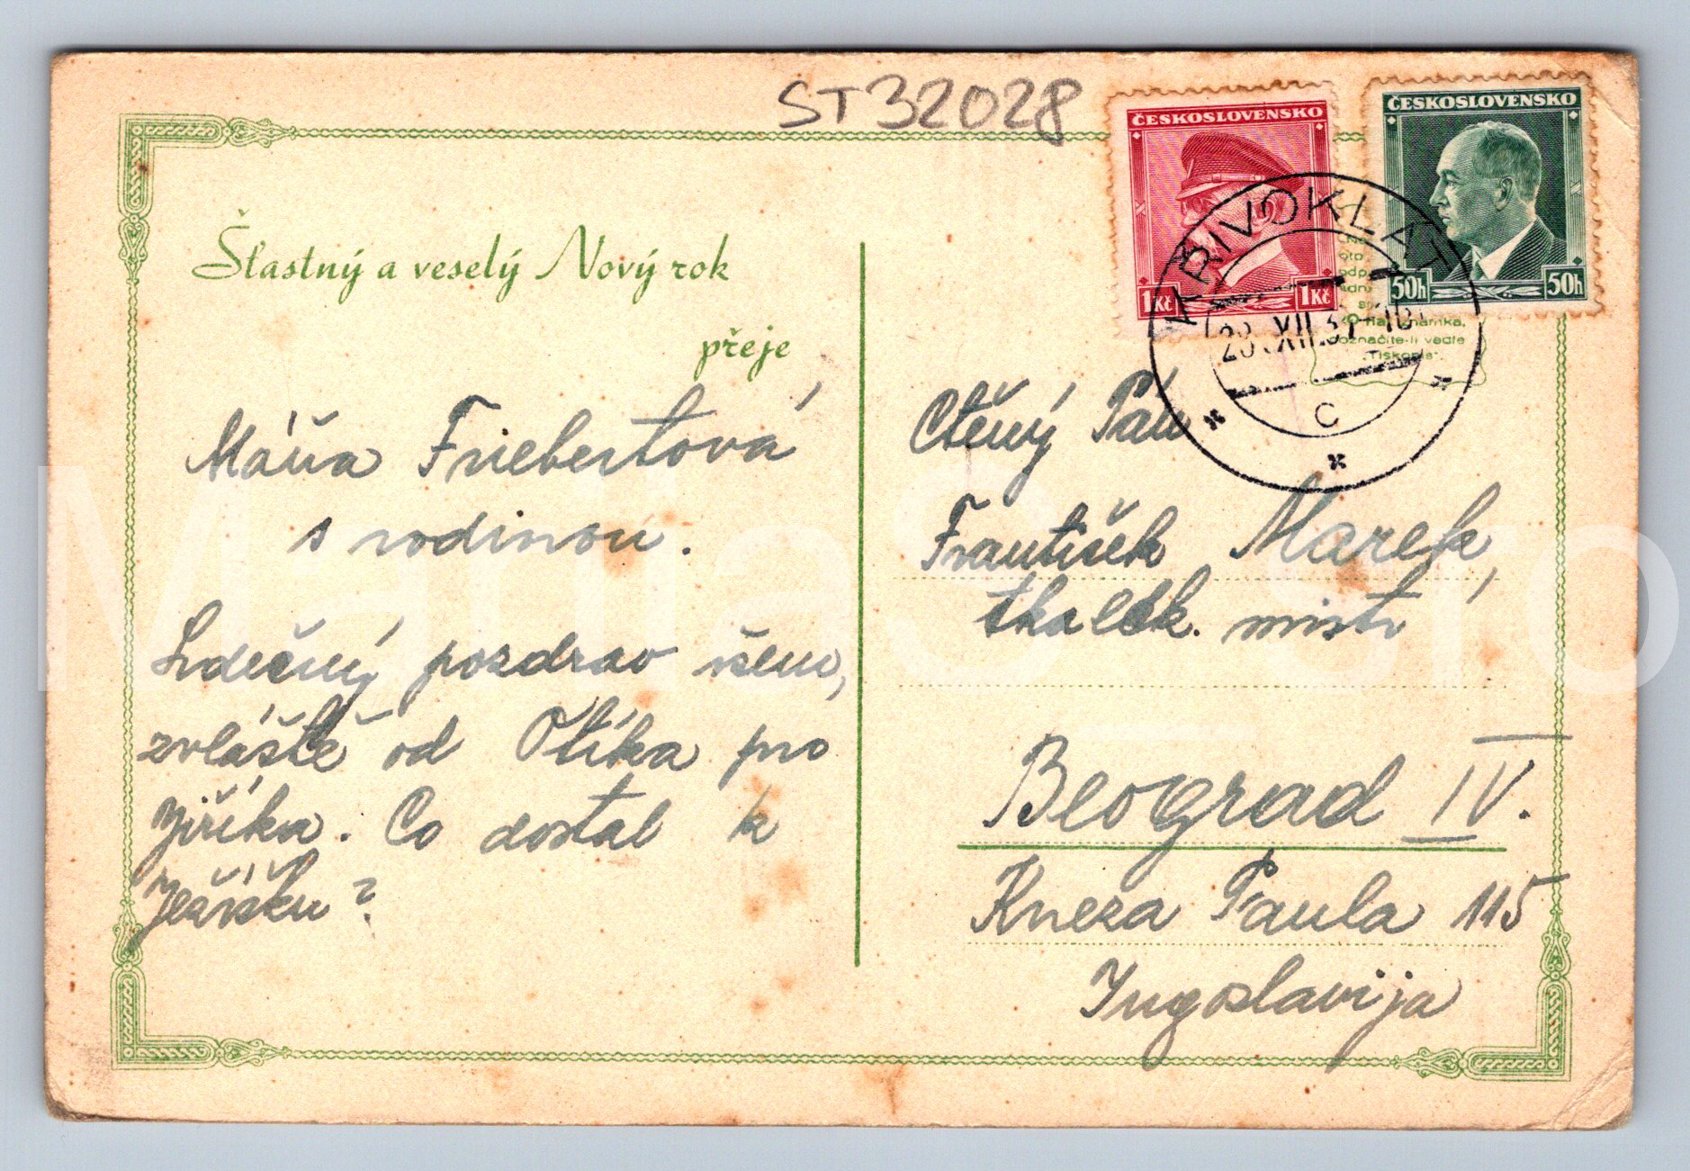 ST32028
ČESKOSLOVENSKO
1Kč 1Kč
ČESKOSLOVENSKO
50h 50h
KŘIVOKLÁT
XII.37
C
známka,
označíte-li vedle
"Tiskopis".
Šťastný a veselý Nový rok
přeje
Máňa Friebertová
s rodinou.
Srdečný pozdrav všem,
zvláště od Otíka pro
Jiříka. Co dostal k
Ježíšku?
Ctěný Pán
František Marek,
tkalck. mistr
Beograd IV.
Kneza Paula 115
Jugoslavija